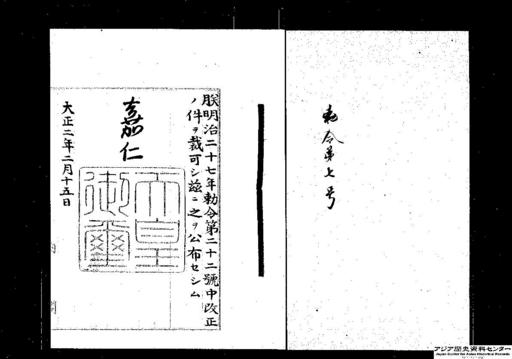 勅令第七号
朕明治二十七年勅令第二十二號中改正
ノ件ヲ裁可シ茲ニ之ヲ公布セシム
嘉仁
天皇
御璽
大正二年二月十五日
内閣
アジア歴史資料センター
Japan Center for Asian Historical Records